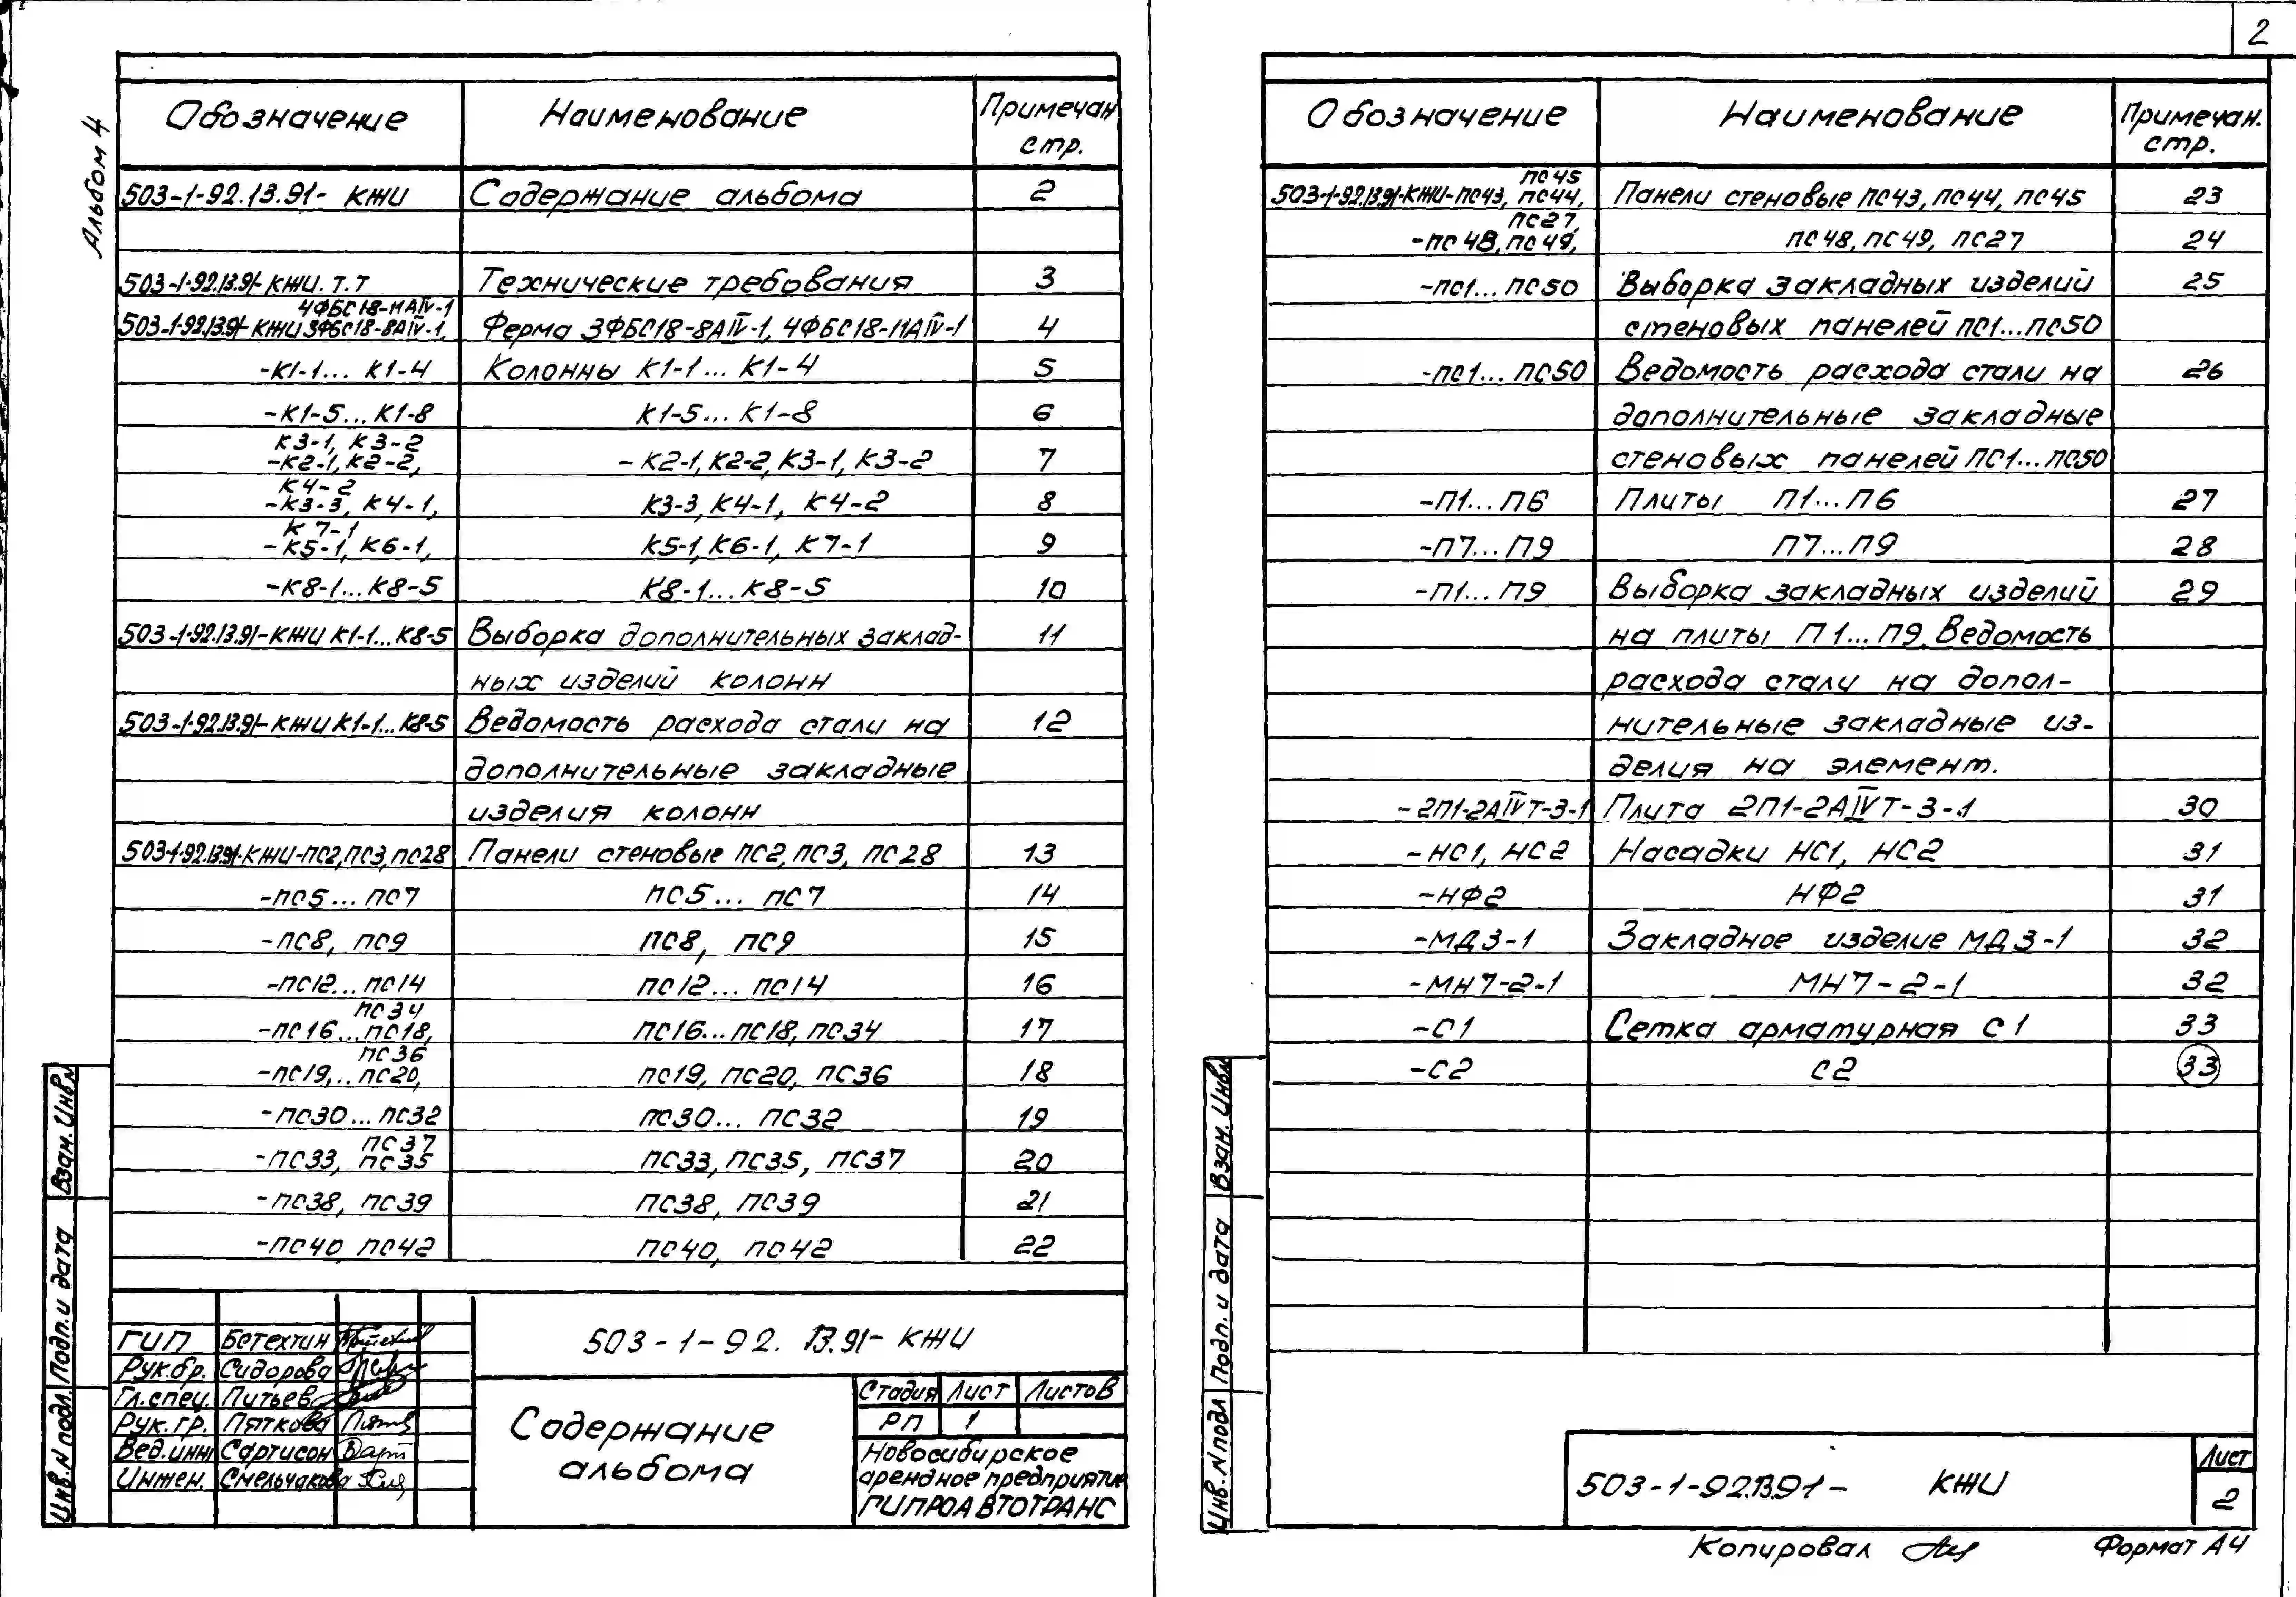 2
Альбом 4
Обозначение Наименование Примечан стр.
503-1-92.13.91- КЖИ Содержание альбома 2
503-1-92.13.91-КЖИ. Т.Т Технические требования 3
4ФБС18-11АIV-1
503-1-92.13.91-КЖИ 3ФБС18-8АIV-1, Ферма 3ФБС18-8АIV-1, 4ФБС18-11АIV-1 4
-К1-1... К1-4 Колонны К1-1... К1-4 5
-К1-5... К1-8 К1-5... К1-8 6
К3-1, К3-2
-К2-1, К2-2, - К2-1, К2-2, К3-1, К3-2 7
К4-2
-К3-3, К4-1, К3-3, К4-1, К4-2 8
К7-1
-К5-1, К6-1, К5-1, К6-1, К7-1 9
-К8-1... К8-5 К8-1... К8-5 10
503-1-92.13.91-КЖИ К1-1... К8-5 Выборка дополнительных заклад- 11
ных изделий колонн
503-1-92.13.91-КЖИ К1-1... К8-5 Ведомость расхода стали на 12
дополнительные закладные
изделия колонн
503-1-92.13.91-КЖИ-ПС2, ПС3, ПС28 Панели стеновые ПС2, ПС3, ПС28 13
-ПС5... ПС7 ПС5... ПС7 14
-ПС8, ПС9 ПС8, ПС9 15
-ПС12... ПС14 ПС12... ПС14 16
ПС34
-ПС16...ПС18, ПС16...ПС18, ПС34 17
ПС36
-ПС19,.. ПС20, ПС19, ПС20, ПС36 18
-ПС30... ПС32 ПС30... ПС32 19
ПС37
-ПС33, ПС35 ПС33, ПС35, ПС37 20
-ПС38, ПС39 ПС38, ПС39 21
-ПС40, ПС42 ПС40, ПС42 22
Взам. Инв.N
Подп. и дата
Инв. N подл.
ГИП Бетехтин
Рук.бр. Сидорова
Гл.спец. Питьев
Рук. гр. Пяткова
Вед.инж Сартисон
Инжен. Смельчакова
503-1-92. 13.91- КЖИ
Содержание
альбома
Стадия Лист Листов
РП 1
Новосибирское
арендное предприятие
ГИПРОАВТОТРАНС
Обозначение Наименование Примечан. стр.
ПС45
503-1-92.13.91-КЖИ-ПС43, ПС44, Панели стеновые ПС43, ПС44, ПС45 23
ПС27,
-ПС48, ПС49, ПС48, ПС49, ПС27 24
-ПС1... ПС50 Выборка закладных изделий 25
стеновых панелей ПС1...ПС50
-ПС1... ПС50 Ведомость расхода стали на 26
дополнительные закладные
стеновых панелей ПС1...ПС50
-П1... П6 Плиты П1...П6 27
-П7... П9 П7...П9 28
-П1... П9 Выборка закладных изделий 29
на плиты П1... П9. Ведомость
расхода стали на допол-
нительные закладные из-
делия на элемент.
-2П1-2АIVТ-3-1 Плита 2П1-2АIVТ-3-1 30
-НС1, НС2 Насадки НС1, НС2 31
-НФ2 НФ2 31
-МД3-1 Закладное изделие МД3-1 32
-МН7-2-1 МН7-2-1 32
-С1 Сетка арматурная С1 33
-С2 С2 33
Взам. Инв.N
Подп. и дата
Инв. N подл
503-1-92.13.91- КЖИ
Лист
2
Копировал
Формат А4